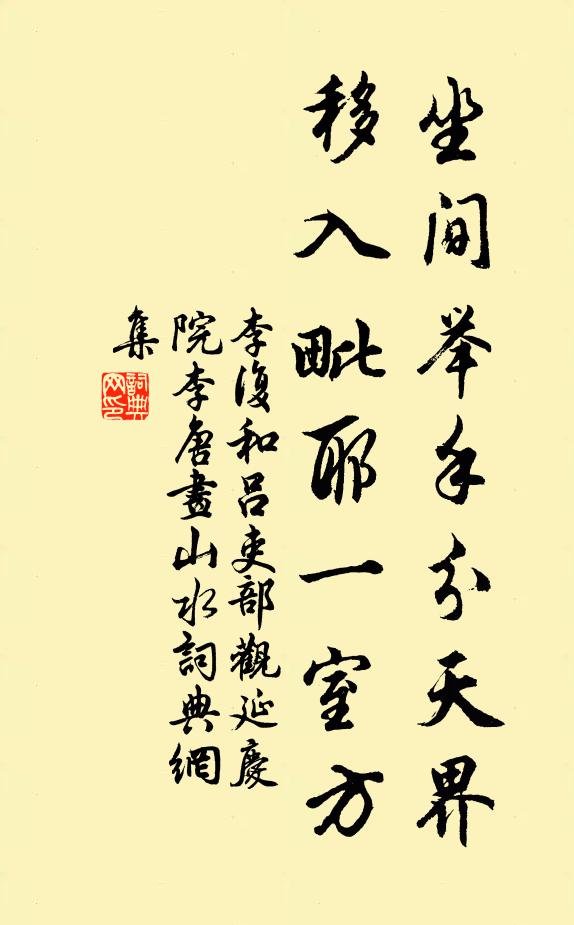 坐间举手分天界
移入毗耶一室方
李復和呂吏部觀延慶
院李唐畫山水詞典網
集
詞典
网印